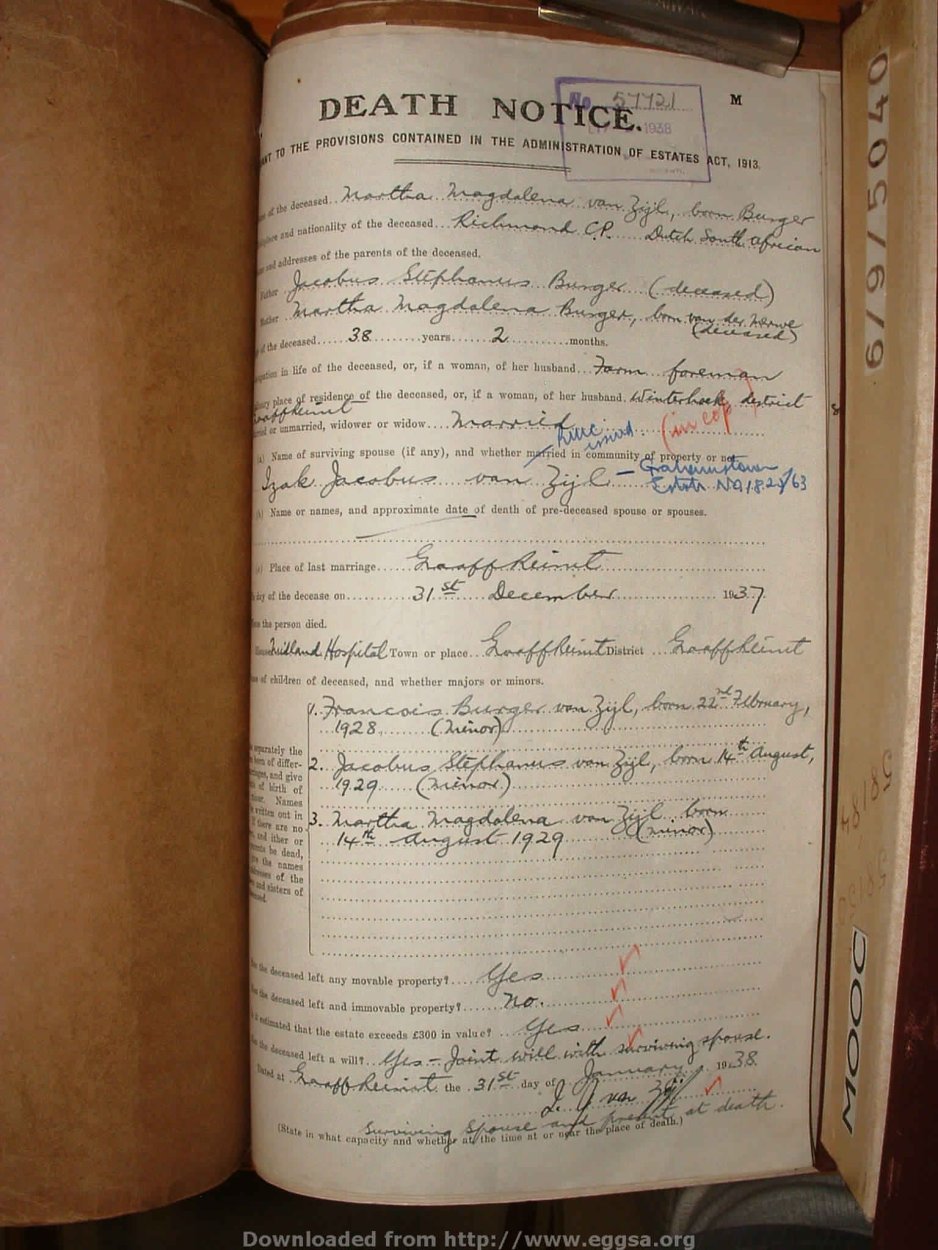 No 57721
1938
M
DEATH NOTICE.
TO THE PROVISIONS CONTAINED IN THE ADMINISTRATION OF ESTATES ACT, 1913.
of the deceased Martha Magdalena van Zijl, born Burger
and nationality of the deceased Richmond C.P. Dutch South African
and addresses of the parents of the deceased.
Father Jacobus Stephanus Burger (deceased)
Mother Martha Magdalena Burger, born van der Merwe
(deceased)
of the deceased 38 years 2 months.
in life of the deceased, or, if a woman, of her husband Farm foreman
place of residence of the deceased, or, if a woman, of her husband. Winterhoek district
Graaff Reinet
or unmarried, widower or widow Married (in cop)
issued
(a) Name of surviving spouse (if any), and whether married in community of property or not
Izak Jacobus van Zijl – Grahamstown
Estate No 1822/63
(b) Name or names, and approximate date of death of pre-deceased spouse or spouses.
(c) Place of last marriage Graaff Reinet
day of the decease on 31st December 1937
the person died.
Midland Hospital Town or place Graaff Reinet District Graaff Reinet
of children of deceased, and whether majors or minors.
1. Francois Burger van Zijl, born 22nd February,
1928. (minor)
separately the
born of differ-
and give
of birth of
Names
written out in
there are no
and either or
be dead,
the names
of the
and sisters of
2. Jacobus Stephanus van Zijl, born 14th August,
1929 (minor)
3. Martha Magdalena van Zijl born
14th August 1929 (minor)
the deceased left any movable property? Yes
the deceased left and immovable property? No.
estimated that the estate exceeds £300 in value? Yes
the deceased left a will? Yes – Joint will with surviving spouse.
Dated at Graaff Reinet the 31st day of January 1938
I. J. van Zijl
Surviving spouse and present at death.
(State in what capacity and whether at the time at or near the place of death.)
6/9/5040
MOOC
Downloaded from http://www.eggsa.org